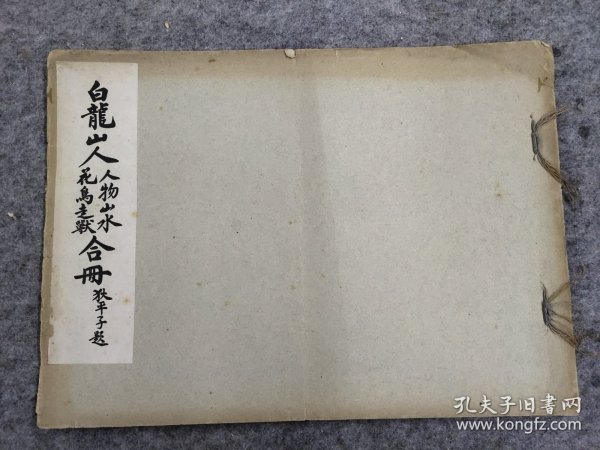 白龍山人人物山水花鳥走獸合冊
狄平子題
孔夫子旧書网
www.kongfz.com